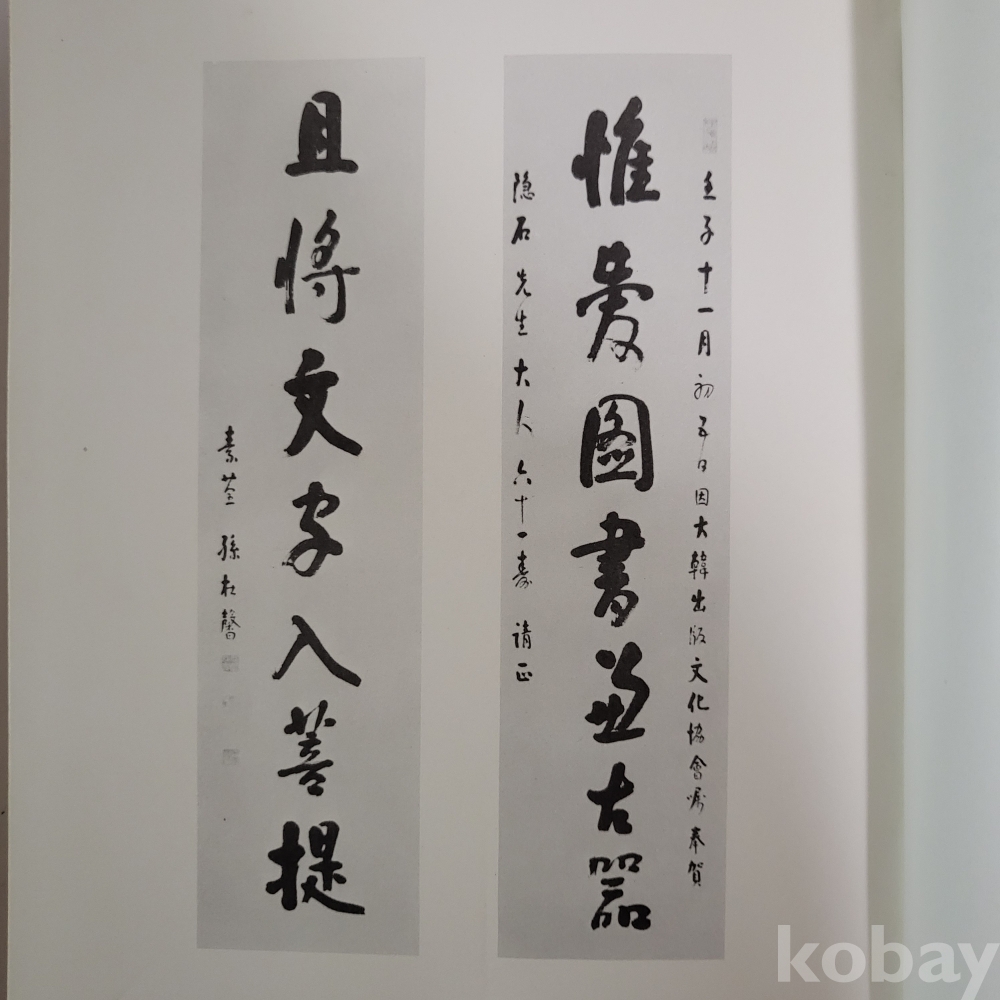 壬子十一月初五日因大韓出版文化協會囑奉賀
惟愛圖書兼古器
隐石先生大人六十一壽 请正
且將文字入菩提
素荃 孫在馨
kobay